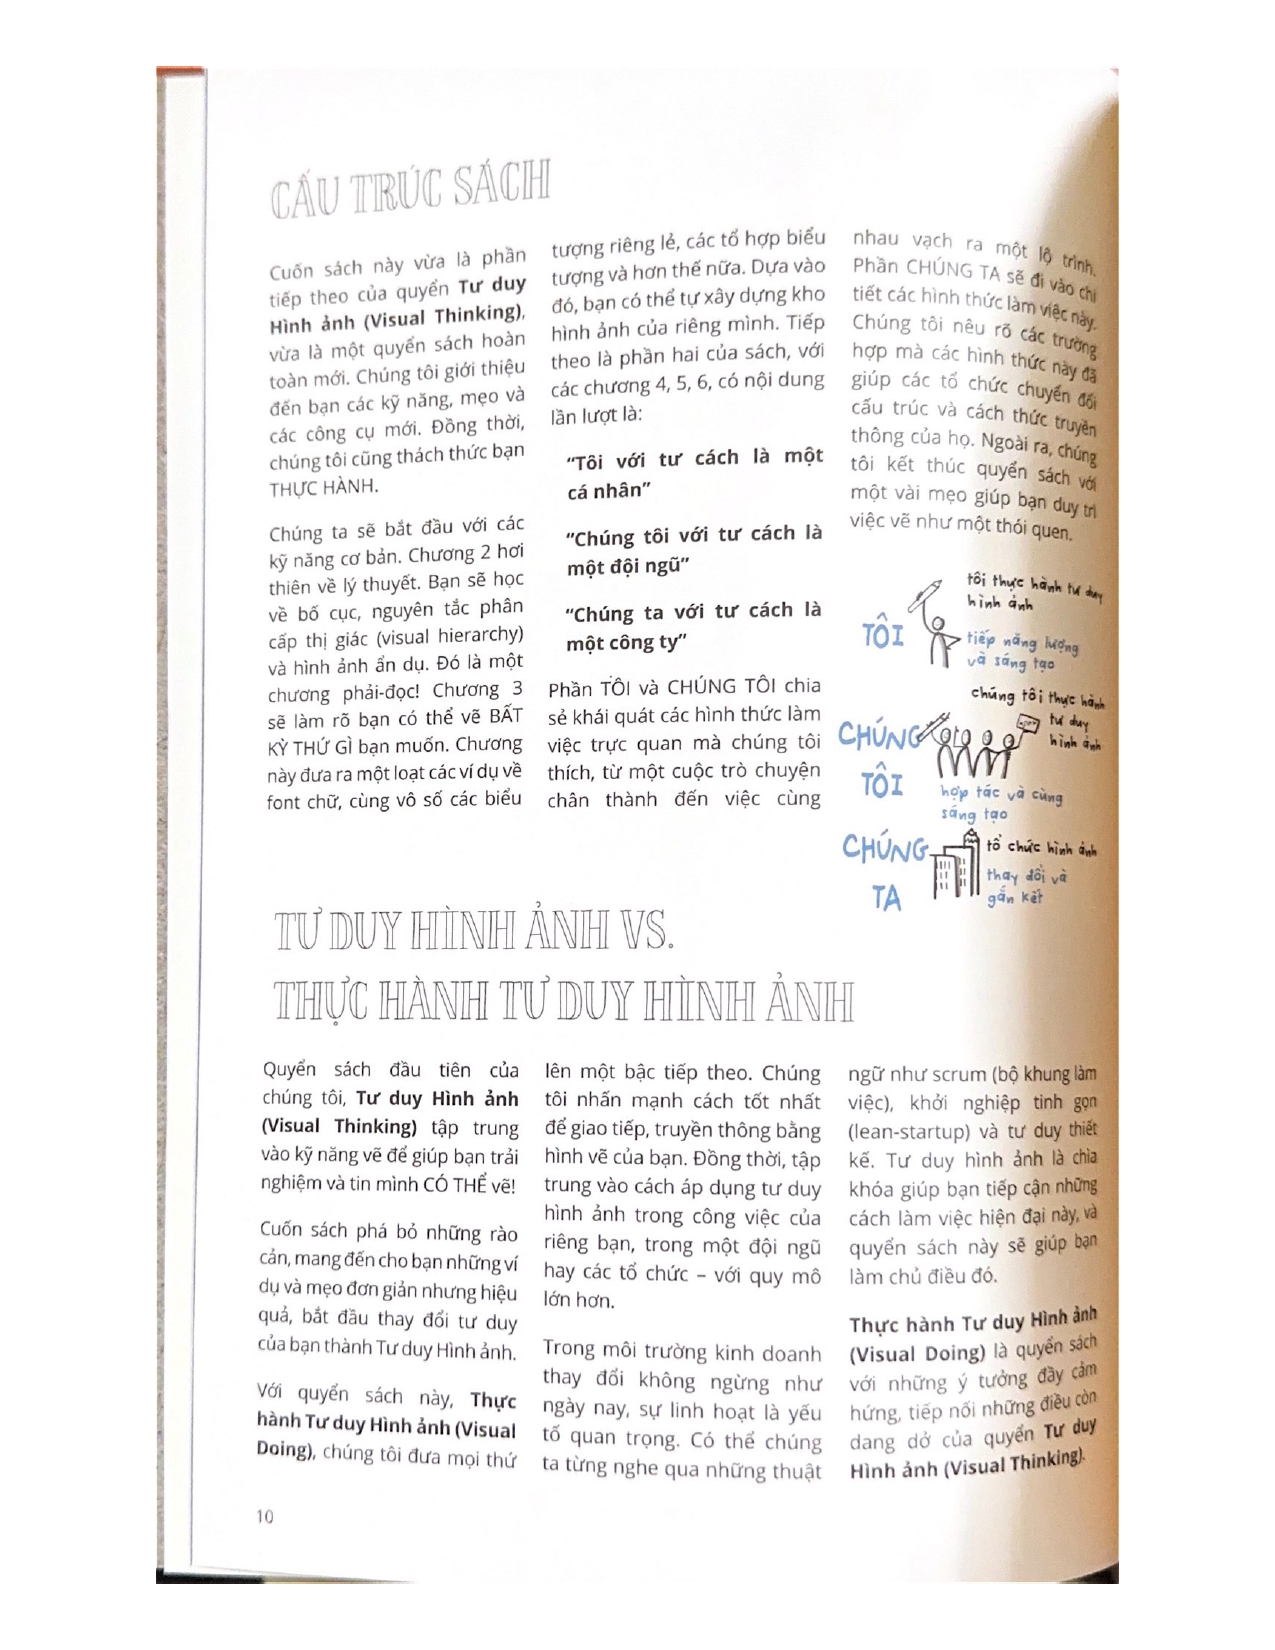 CẤU TRÚC SÁCH
Cuốn sách này vừa là phần
tiếp theo của quyển Tư duy
Hình ảnh (Visual Thinking),
vừa là một quyển sách hoàn
toàn mới. Chúng tôi giới thiệu
đến bạn các kỹ năng, mẹo và
các công cụ mới. Đồng thời,
chúng tôi cũng thách thức bạn
THỰC HÀNH.
Chúng ta sẽ bắt đầu với các
kỹ năng cơ bản. Chương 2 hơi
thiên về lý thuyết. Bạn sẽ học
về bố cục, nguyên tắc phân
cấp thị giác (visual hierarchy)
và hình ảnh ẩn dụ. Đó là một
chương phải-đọc! Chương 3
sẽ làm rõ bạn có thể vẽ BẤT
KỲ THỨ GÌ bạn muốn. Chương
này đưa ra một loạt các ví dụ về
font chữ, cùng vô số các biểu
tượng riêng lẻ, các tổ hợp biểu
tượng và hơn thế nữa. Dựa vào
đó, bạn có thể tự xây dựng kho
hình ảnh của riêng mình. Tiếp
theo là phần hai của sách, với
các chương 4, 5, 6, có nội dung
lần lượt là:
“Tôi với tư cách là một
cá nhân”
“Chúng tôi với tư cách là
một đội ngũ”
“Chúng ta với tư cách là
một công ty”
Phần TÔI và CHÚNG TÔI chia
sẻ khái quát các hình thức làm
việc trực quan mà chúng tôi
thích, từ một cuộc trò chuyện
chân thành đến việc cùng
nhau vạch ra một lộ trình.
Phần CHÚNG TA sẽ đi vào chi
tiết các hình thức làm việc này.
Chúng tôi nêu rõ các trường
hợp mà các hình thức này đã
giúp các tổ chức chuyển đổi
cấu trúc và cách thức truyền
thông của họ. Ngoài ra, chúng
tôi kết thúc quyển sách với
một vài mẹo giúp bạn duy trì
việc vẽ như một thói quen.
TÔI
tôi thực hành tư duy
hình ảnh
tiếp năng lượng
và sáng tạo
CHÚNG
TÔI
chúng tôi thực hành
tư duy
hình ảnh
hợp tác và cùng
sáng tạo
CHÚNG
TA
tổ chức hình ảnh
thay đổi và
gắn kết
TƯ DUY HÌNH ẢNH VS.
THỰC HÀNH TƯ DUY HÌNH ẢNH
Quyển sách đầu tiên của
chúng tôi, Tư duy Hình ảnh
(Visual Thinking) tập trung
vào kỹ năng vẽ để giúp bạn trải
nghiệm và tin mình CÓ THỂ vẽ!
Cuốn sách phá bỏ những rào
cản, mang đến cho bạn những ví
dụ và mẹo đơn giản nhưng hiệu
quả, bắt đầu thay đổi tư duy
của bạn thành Tư duy Hình ảnh.
Với quyển sách này, Thực
hành Tư duy Hình ảnh (Visual
Doing), chúng tôi đưa mọi thứ
lên một bậc tiếp theo. Chúng
tôi nhấn mạnh cách tốt nhất
để giao tiếp, truyền thông bằng
hình vẽ của bạn. Đồng thời, tập
trung vào cách áp dụng tư duy
hình ảnh trong công việc của
riêng bạn, trong một đội ngũ
hay các tổ chức – với quy mô
lớn hơn.
Trong môi trường kinh doanh
thay đổi không ngừng như
ngày nay, sự linh hoạt là yếu
tố quan trọng. Có thể chúng
ta từng nghe qua những thuật
ngữ như scrum (bộ khung làm
việc), khởi nghiệp tinh gọn
(lean-startup) và tư duy thiết
kế. Tư duy hình ảnh là chìa
khóa giúp bạn tiếp cận những
cách làm việc hiện đại này, và
quyển sách này sẽ giúp bạn
làm chủ điều đó.
Thực hành Tư duy Hình ảnh
(Visual Doing) là quyển sách
với những ý tưởng đầy cảm
hứng, tiếp nối những điều còn
dang dở của quyển Tư duy
Hình ảnh (Visual Thinking).
10